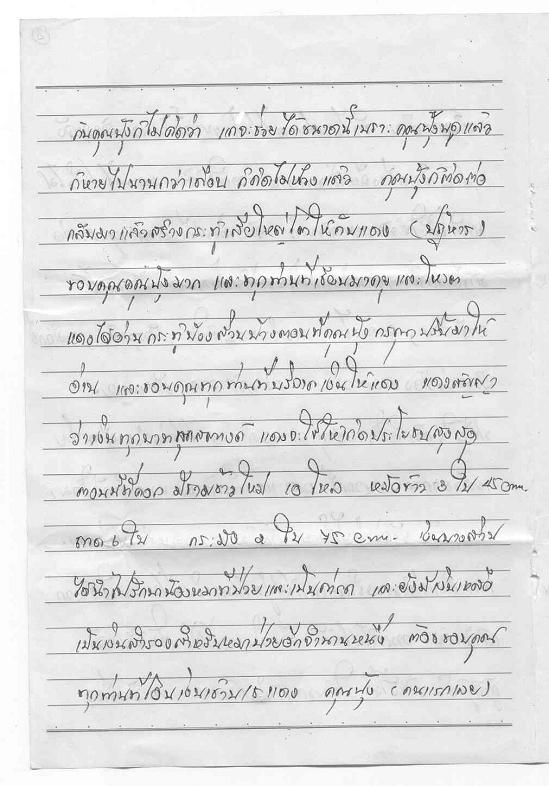 กับคุณปุ้งก็ไม่คิดว่า แกจะช่วยได้ขนาดนี้เพราะ คุณปุ้งพูดแล้ว
ก็หายไปนานกว่าเดือน ก็คิดไม่หวังแล้ว คุณปุ้งก็ติดต่อ
กลับมาแล้วสร้างกระทู้เสื้อใหญ่โตให้กับแดง (ปฏิหาร)
ขอบคุณคุณปุ้งมาก และทุกท่านที่เขียนมาคุย และโหวต
แดงได้อ่านกระทู้ของส่วนบ้างตอนที่คุณปุ้ง กรุณาปริ้นมาให้
อ่าน และขอบคุณทุกท่านที่บริจาคเงินให้แดง แดงสัญญา
ว่าเงินทุกบาททุกสตางค์ แดงจะใช้ให้เกิดประโยชน์สูงสุด
ตอนนี้ที่คอก มีชามข้าวใหม่ 10 โหล หม้อข้าว 3 ใบ 45 cm.
ถาด 6 ใบ กระมัง 2 ใบ 75 cm. เงินบางส่วน
ได้นำไปรักษาน้องหมาที่ป่วยและเป็น และยังมีเงินเหลือ
เป็นเงินสำรองสำหรับหมาป่วยอีกจำนวนหนึ่ง ต้องขอบคุณ
ทุกท่านที่โอนเงินเข้าบ/ช แดง คุณปุ้ง (คนแรกเลย)